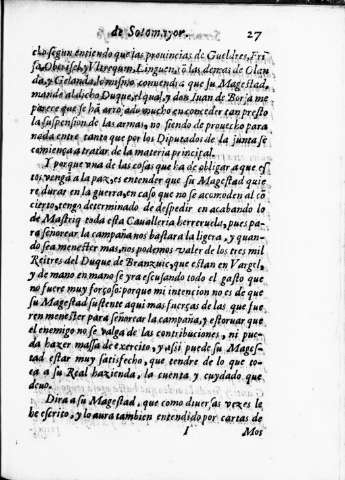 de Sotomayor. 27
cho segun entiendo que las prouincias de Gueldres, Fri
sa, Oberisel, y Vtrequm, Linguen, cõ las demas de Olan
da, y Gelanda, lo mismo conuendrà que su Magestad,
mande al dicho Duque, el qual, y don Iuan de Borja me
parece que se hã arrojado mucho en conceder tan presto
la suspension de las armas, no siendo de prouecho para
nada entre tanto que por los Diputados de la junta se
comiença a tratar de la materia principal.
Y porque vna de las cosas que ha de obligar a que es
tos vengã a la paz, es entender que su Magestad quie
re durar en la guerra, en caso que no se acomoden al cõ
cierto, tengo determinado de despedir en acabando lo
de Mastriq toda esta Caualleria herreruela, pues pa-
ra señorear la campaña nos bastara la ligera, y quan-
do sea menester mas, nos podemos valer de los tres mil
Reitres del Duque de Branzuic, que estan en Vargel,
y de mano en mano se yra escusando todo el gasto que
no fuere muy forçoso: porque mi intencion no es de que
su Magestad sustente aqui mas fuerças de las que fue
ren menester para señorear la campaña, y estoruar que
el enemigo no se valga de las contribuciones, ni pue-
da hazer massa de exercito, y assi puede su Mages-
tad estar muy satisfecho, que tendre de lo que to-
ca a su Real hazienda, la cuenta y cuydado que
deuo.
Dira a su Magestad, que como diuersas vezes le
he escrito, y lo aura tambien entendido por cartas de
I Mos